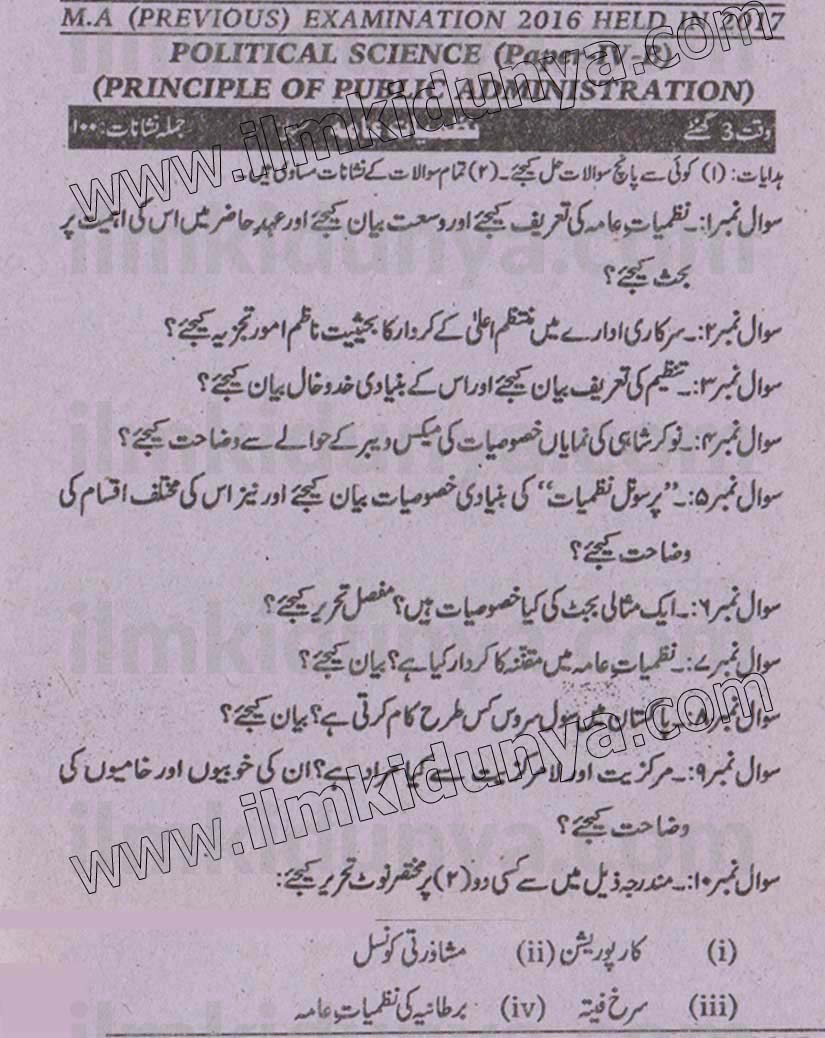 M.A (PREVIOUS) EXAMINATION 2016 HELD IN 2017
POLITICAL SCIENCE (Paper-IV-B)
(PRINCIPLE OF PUBLIC ADMINISTRATION)
وقت 3 گھنٹے جملہ نشانات: ۱۰۰
ہدایات: (۱) کوئی سے پانچ سوالات حل کیجئے۔ (۲) تمام سوالات کے نشانات مساوی ہیں۔
سوال نمبر۱:۔ نظمیاتِ عامہ کی تعریف کیجئے اور وسعت بیان کیجئے اور عہدِ حاضر میں اس کی اہمیت پر
بحث کیجئے؟
سوال نمبر۲:۔ سرکاری ادارے میں منتظم اعلیٰ کے کردار کا بحیثیت ناظم امور تجزیہ کیجئے؟
سوال نمبر۳:۔ تنظیم کی تعریف بیان کیجئے اور اس کے بنیادی خدوخال بیان کیجئے؟
سوال نمبر۴:۔ نوکر شاہی کی نمایاں خصوصیات کی میکس ویبر کے حوالے سے وضاحت کیجئے؟
سوال نمبر۵:۔ ”پرسونل نظمیات“ کی بنیادی خصوصیات بیان کیجئے اور نیز اس کی مختلف اقسام کی
وضاحت کیجئے؟
سوال نمبر۶:۔ ایک مثالی بجٹ کی کیا خصوصیات ہیں؟ مفصل تحریر کیجئے؟
سوال نمبر۷:۔ نظمیاتِ عامہ میں مقننہ کا کردار کیا ہے؟ بیان کیجئے؟
سوال نمبر۸:۔ پاکستان میں سول سروس کس طرح کام کرتی ہے؟ بیان کیجئے؟
سوال نمبر۹:۔ مرکزیت اور لامرکزیت سے کیا مراد ہے؟ ان کی خوبیوں اور خامیوں کی
وضاحت کیجئے؟
سوال نمبر۱۰:۔ مندرجہ ذیل میں سے کسی دو (۲) پر مختصر نوٹ تحریر کیجئے:
(i) کارپوریشن (ii) مشاورتی کونسل
(iii) سرخ فیتہ (iv) برطانیہ کی نظمیاتِ عامہ
www.ilmkidunya.com
www.ilmkidunya.com
ilmkidunya.com
ilmkidunya.com
ilmkidunya.com
ilmkidunya.com